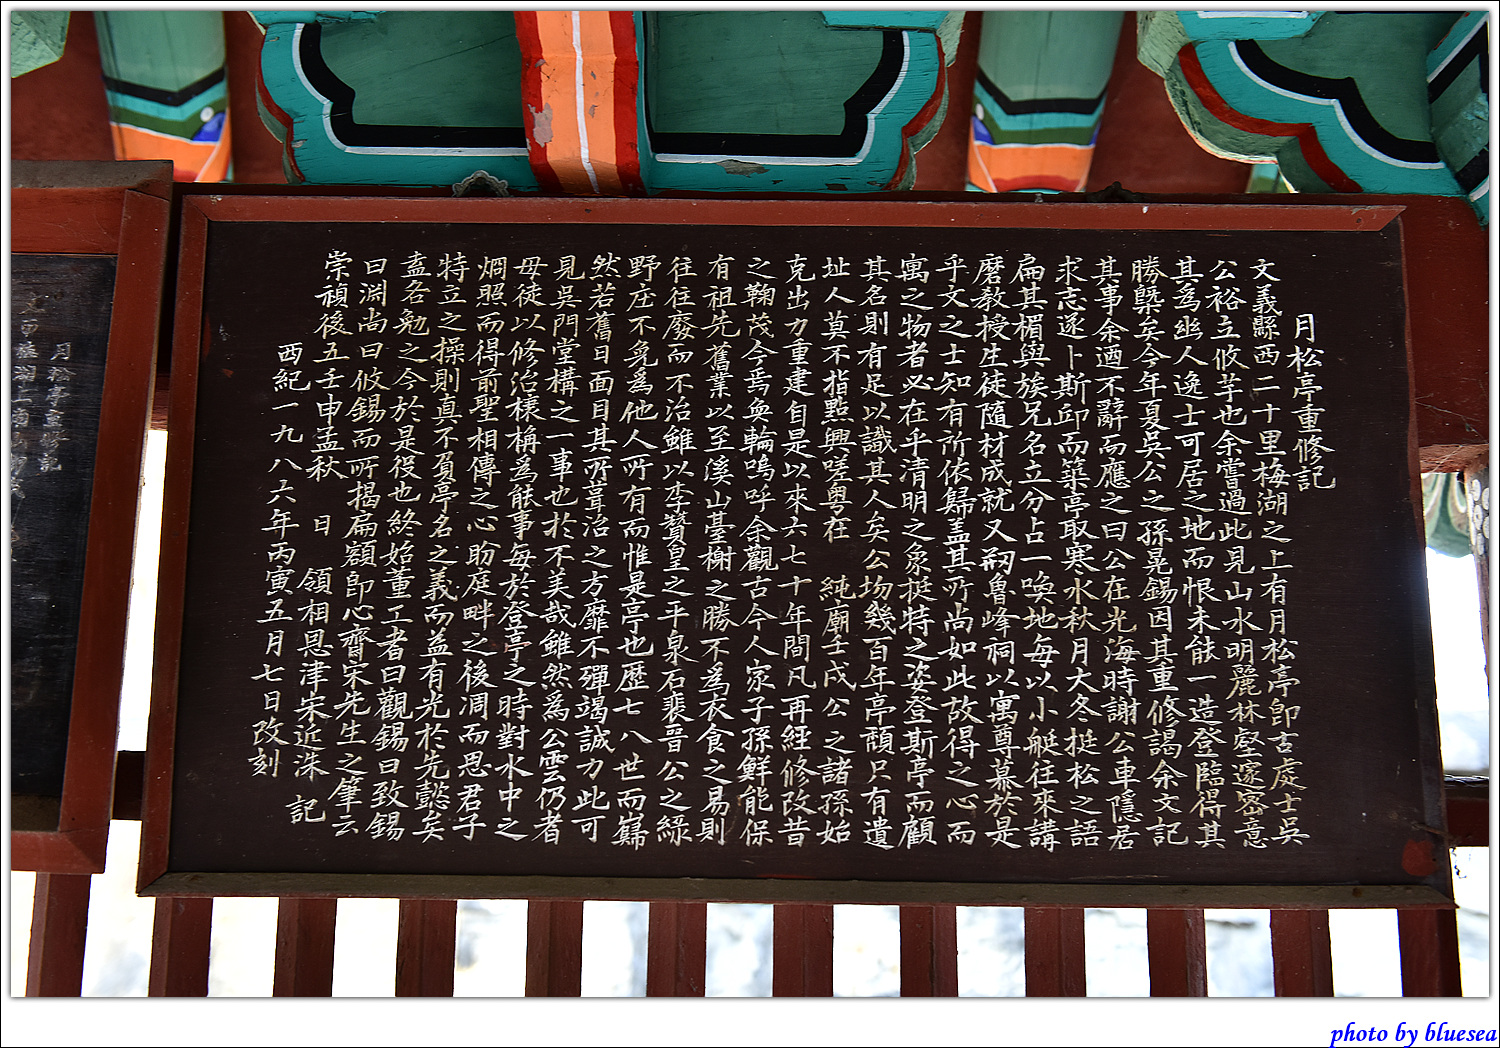 月松亭重修記
文義縣西二十里梅湖之上有月松亭卽古處士吳
公裕立攸芋也余嘗過此見山水明麗林壑邃密意
其為幽人逸士可居之地而恨未能一造登臨得其
勝槩矣今年夏吳公之孫晃錫因其重修謁余文記
其事余迺不辭而應之曰公在光海時謝公車隱居
求志遂卜斯邱而築亭取寒水秋月大冬挺松之語
扁其楣與族兄名立分占一喚地每以小艇往來講
磨敎授生徒隨材成就又刱魯峰祠以寓尊慕於是
乎文之士知有所依歸盖其所尚如此故得之心而
寓之物者必在乎清明之象挺特之姿登斯亭而顧
其名則有足以識其人矣公歿幾百年亭頹只有遺
址人莫不指點興嗟粤在 純廟壬戌公之諸孫始
克出力重建自是以來六七十年間凡再經修改昔
之鞠茂今焉奐輪嗚呼余觀古今人家子孫鮮能保
有祖先舊業以至溪山臺榭之勝不爲衣食之易則
往往廢而不治雖以李贊皇之平泉石裵晉公之綠
野庄不免爲他人所有而惟是亭也歷七八世而巋
然若舊日面目其所葺治之方靡不殫竭誠力此可
見吳門堂構之一事也於不美哉雖然為公雲仍者
毋徒以修治榱桷爲能事每於登亭之時對水中之
烱照而得前聖相傳之心盼庭畔之後凋而思君子
特立之操則真不負亭名之義而益有光於先懿矣
盍各勉之今於是役也終始董工者曰觀錫曰致錫
曰淵尚曰攸錫而所揭扁額卽心齋宋先生之筆云
崇禎後五壬申孟秋 日 領相恩津宋近洙 記
西紀一九八六年丙寅五月七日改刻
月松亭重修記
photo by bluesea